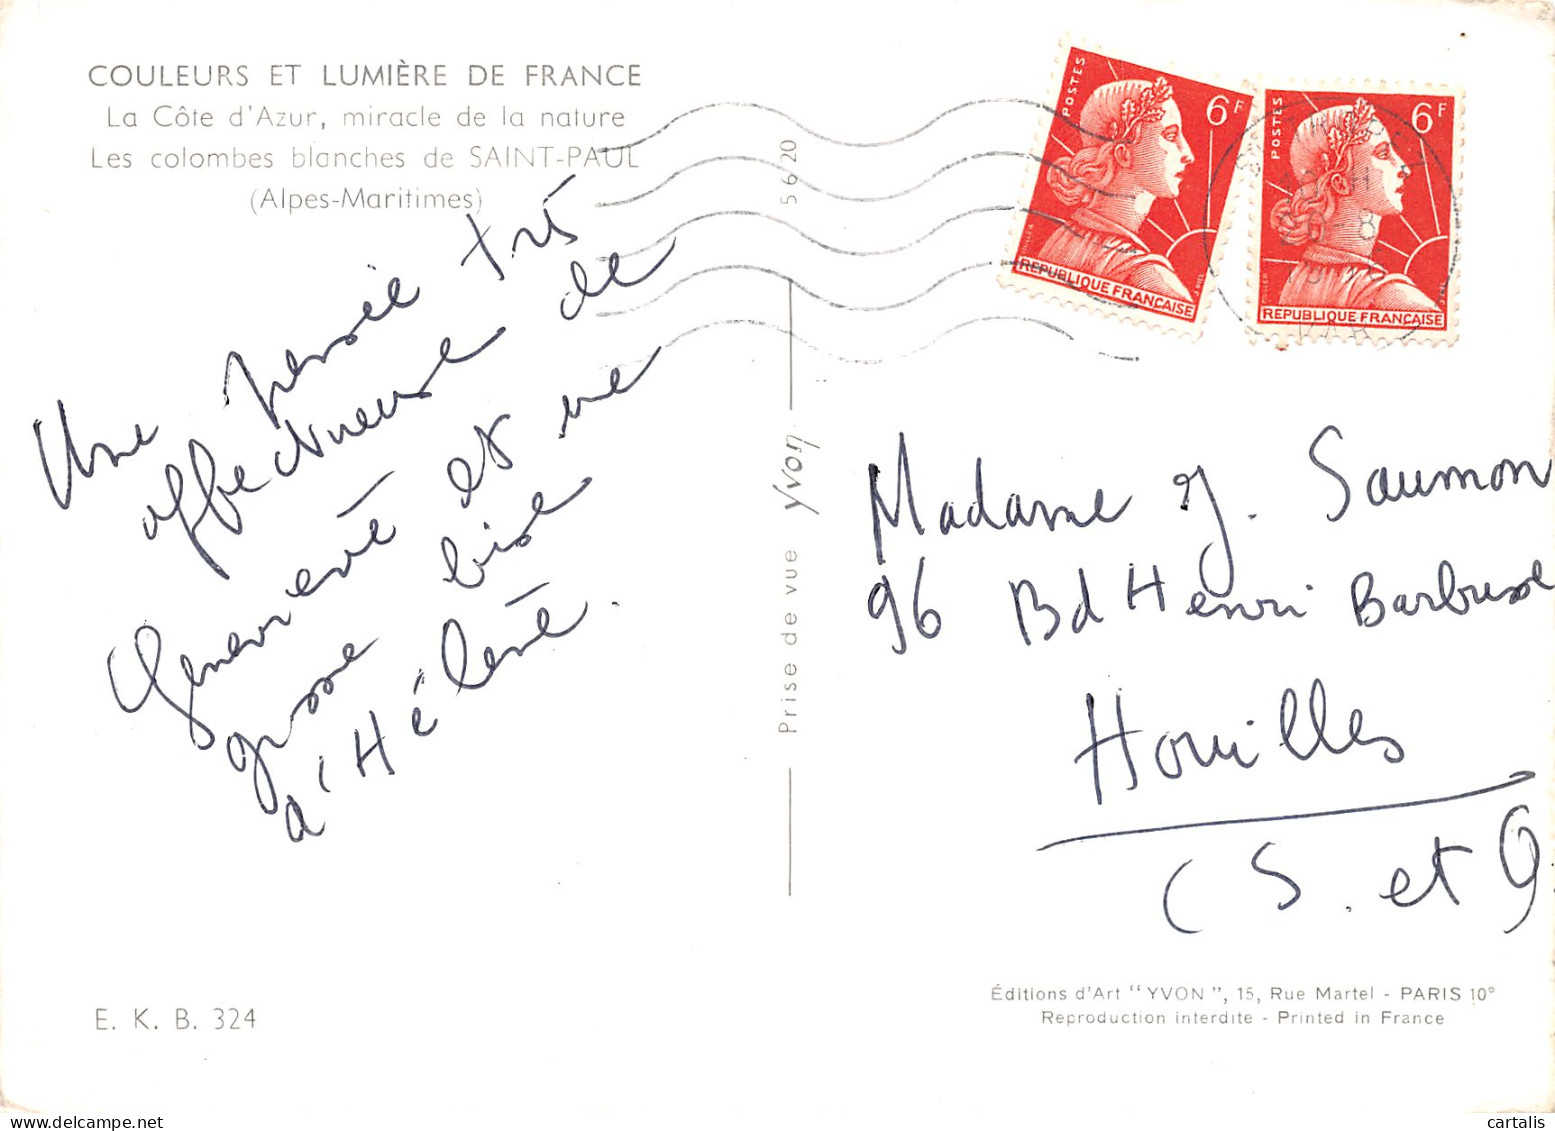 COULEURS ET LUMIÈRE DE FRANCE
La Côte d'Azur, miracle de la nature
Les colombes blanches de SAINT-PAUL
(Alpes-Maritimes)
Une pensée très
affectueuse de
Geneviève et une
grosse bise
d'Hélène.
E. K. B. 324
5 6 20
Prise de vue Yvon
POSTES
6F
REPUBLIQUE FRANÇAISE
POSTES
6F
REPUBLIQUE FRANÇAISE
VAR
Madame J. Saumon
96 Bd Henri Barbusse
Houilles
(S. et O
Éditions d'Art "YVON", 15, Rue Martel - PARIS 10e
Reproduction interdite - Printed in France
cartalis